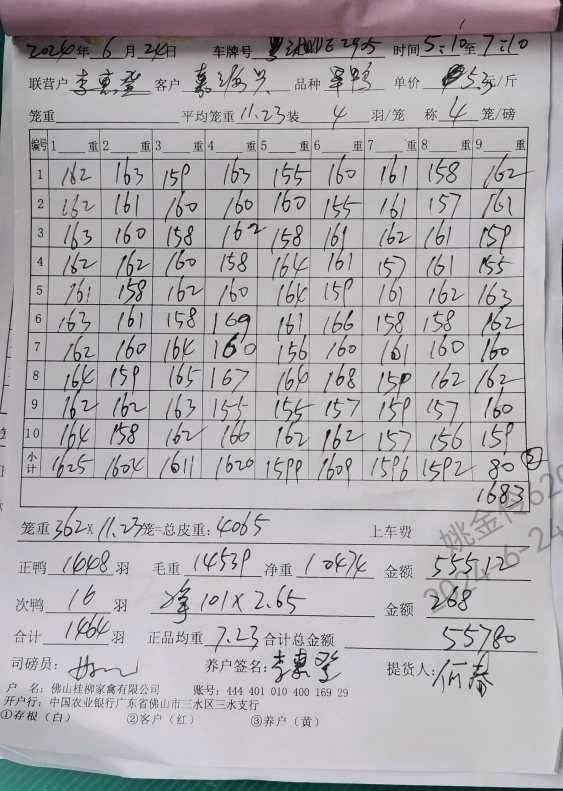 2024年 6月 24日 车牌号 2905 时间 5:10至7:10
联营户 李惠登 客户 品种 单鸭 单价 5.3元/斤
笼重 平均笼重 11.23 装 4 羽/笼 称 4 笼/磅
编号 1 重 2 重 3 重 4 重 5 重 6 重 7 重 8 重 9 重
1 162 163 159 163 155 160 161 158 162
2 162 161 160 160 160 155 161 157 161
3 163 160 158 162 158 161 162 161 159
4 162 162 160 158 164 161 157 161 155
5 161 158 162 160 164 159 161 162 163
6 163 161 158 169 161 166 158 158 162
7 162 160 164 160 156 160 161 160 160
8 164 159 165 167 164 168 159 162 162
9 162 162 163 155 155 157 159 157 160
10 164 158 162 166 162 162 157 156 159
小计 1625 1604 1611 1620 1599 1609 1596 1592 80 ②
1683
笼重 362 × 11.23 笼=总皮重: 4065 上车费
正鸭 1448 羽 毛重 14539 净重 10474 金额 55512
次鸭 16 羽 净 101 × 2.65 金额 268
合计 1464 羽 正品均重 7.23 合计总金额 55780
司磅员: 养户签名: 李惠登 提货人:
户 名: 佛山桂柳家禽有限公司 账号: 444 401 010 400 169 29
开户行: 中国农业银行广东省佛山市三水区三水支行
①存根(白) ②客户(红) ③养户(黄)
2024-6-24